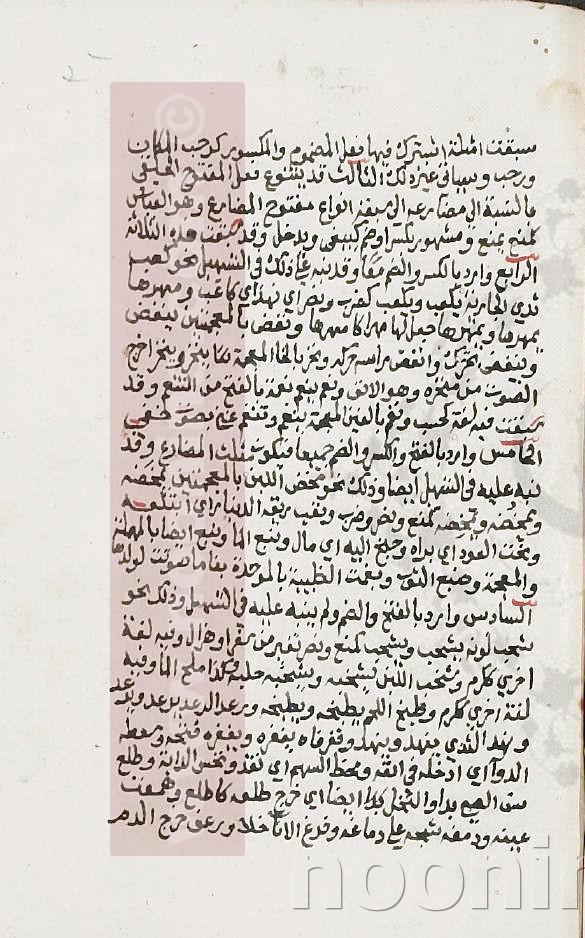 سبقت امثلة اشترك فيها فعل المضموم والمكسور كرحب المكان
ورحب وسياتي غير ذلك الثالث قد يتنوع فعل المفتوح الحلقي
بالنسبة الى مضارعه الى سبعة انواع مفتوح المضارع وهو القياس
كمنع يمنع ومشهور بكسر او ضم كيبغي ويدخل وقد سبقت هذه الثلاثة
الرابع وارد بالكسر والضم معا وقد نبه على ذلك في التسهيل نحو كعب
ثدي الجارية يكعب ويكعب كضرب ونصر اي نهد اي كاعب ومهرها
يمهرها ويمهرها جعل لها مهرا كامهرها ونغض بالمعجمتين ينغض
وينغض تحرك وانغض راسه حركه ونخر بالخا المعجمة ينخر وينخر اخرج
الصوت من منخره وهو الانف
سبقت فيه لغة كحسب ونغم بالغين المعجمة ينغم وتنغم غنى بصوت خفي
الخامس وارد بالفتح والكسر والضم جميعا فيكون مثلث المضارع وقد
نبه عليه في التسهيل ايضا وذلك نحو مخض اللبن بالمعجمتين يمخضه
ويمخضه ويمخضه كمنع ونصر وضرب
ونحت العود اي براه وجنح اليه اي مال ونبع الما ونبغ ايضا بالمهملة
والمعجمة وصبغ الثوب وبغمت الظبية بالموحدة بغاما صوتت لولدها
السادس وارد بالفتح والضم ولم ينبه عليه في التسهيل وذلك نحو
شحب لونه يشحب ويشحب كمنع ونصر تغير من سقر او هزال وفيه لغة
اخرى ككرم وشخب اللبن يشخبه ويشخبه حلبه وكذا ملح الما وفيه
لغة اخرى ككرم وطبخ اللحم يطبخه ويطبخه ورعد الرعد يرعد ويرعد
ونهد الثدي ينهد وينهد وفغر فاه يفغره ويفغره فتحه وسعطه
الدوا اي ادخله في انفه ومخط السهم اي نفذ ونخس الدابة وطلع
سن الصبي بدا والنخل كذا ايضا اي خرج طلعه كاطلع وهمعت
عينه ودمغه شجه على دماغه وفرغ الانا خلا ورعف خرج الدم
noonir